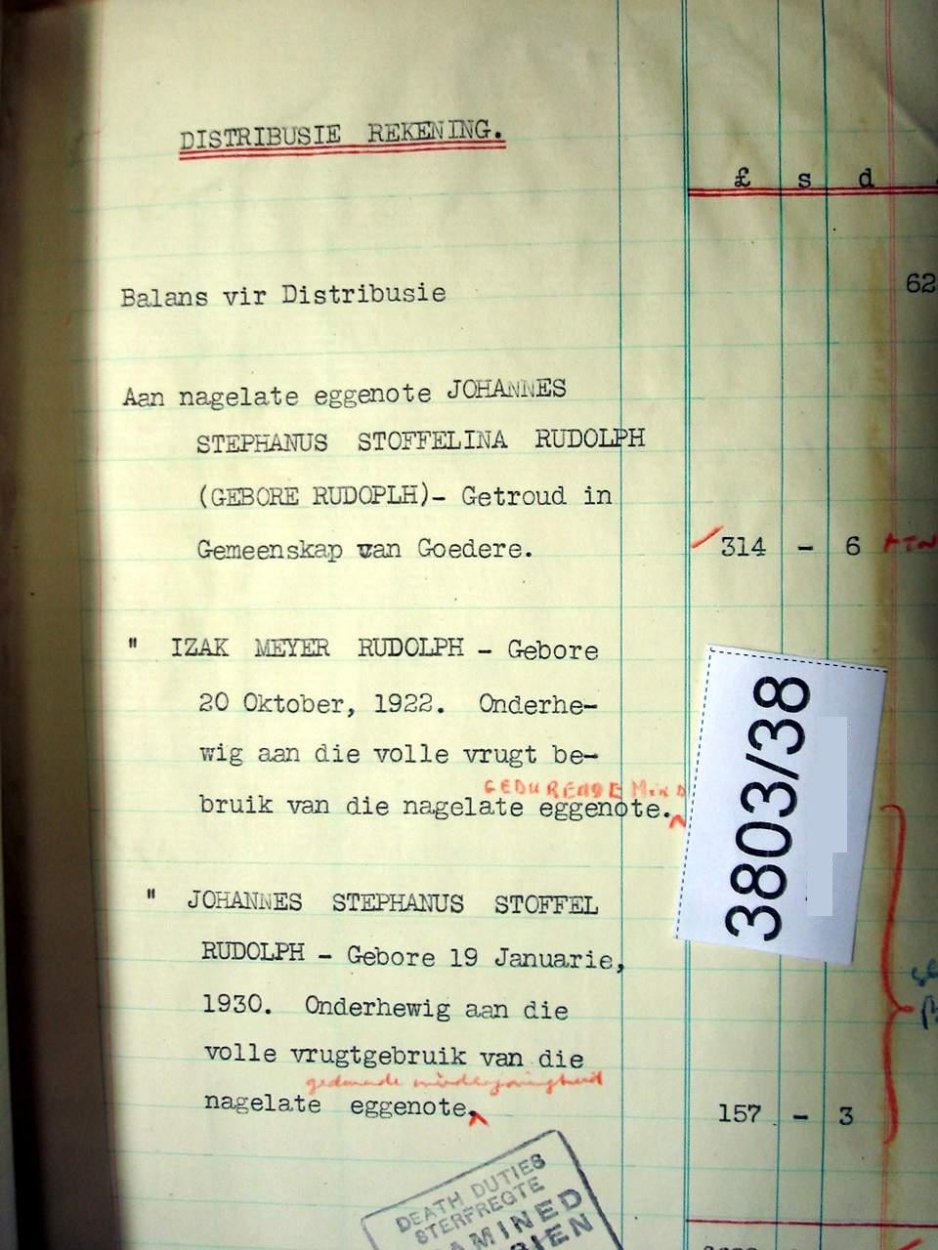 DISTRIBUSIE REKENING.
£ s d
Balans vir Distribusie 62
Aan nagelate eggenote JOHANNES
STEPHANUS STOFFELINA RUDOLPH
(GEBORE RUDOPLH)- Getroud in
Gemeenskap van Goedere. 314 - 6
" IZAK MEYER RUDOLPH - Gebore
20 Oktober, 1922. Onderhe-
wig aan die volle vrugt be-
GEDURENDE MIND
bruik van die nagelate eggenote.
3803/38
" JOHANNES STEPHANUS STOFFEL
RUDOLPH - Gebore 19 Januarie,
1930. Onderhewig aan die
volle vrugtgebruik van die
gedurende minderjarigheid
nagelate eggenote. 157 - 3
DEATH DUTIES
STERFREGTE
AMINED
SIEN